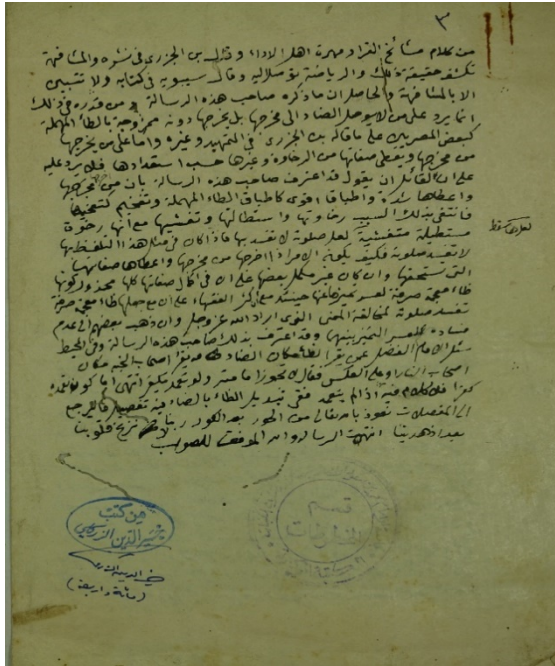 ٣
من كلام مشائخ القراء مهرة اهل الاداء وقال بن الجزرى فى نشره والمشافهة
تكشف حقيقة ذلك والرياضة توصل اليه وقال سيبويه فى كتابه ولا تتبين
الا بالمشافهة والحاصل ان ماذكره صاحب هذه الرسالة ومن قدره فى ذلك
انما يرد على من لا يوصل الضاد الى مخرجها بل يخرجها دونه ممزوجة بالطاء المهملة
كبعض المصريين على ماقاله بن الجزرى فى التمهيد وغيره واما على من يخرجها
من مخرجها ويعطى صفاتها من الرخاوة وغيرها حسب استعدادها فلا يرد عليه
على ان لقائل ان يقول قد اعترف صاحب هذه الرسالة بان من يخرجها
واعطاها شدة واطباقا اقوى كاطباق الطاء المهملة وتفخيم كتفخيمها
فانتفى بذلك السبب رخاوتها واستطالتها وتفشيها مع انها رخوة
مستطيلة متفشية لعله صلوته لا تفسد بها فاذا كان فى مثل هذا التلفظ بها
لعله لا سقط
لا تفسد صلوته فكيف بلونه الامراد اخرجها من مخرجها واعطاها صفاتها
التى تستحقها وان كان غير مكمل بعضها على ان فى اكمال صفاتها كلها محذور كونها
ظاء معجمة صرفة لعسر تميزها عنها حينئذ مع ان اكثر الفقهاء على ان مع جعلها ظاء معجمة صرفة
تفسد صلوته لمخالفة المعنى الذى اراد الله عز وجل وان ذهب بعضهم الى عدم
فساده للعسر التميز بينهما وقد اعترف بذلك صاحب هذه الرسالة وفى المحيط
سئل الامام الفضلى عمن يقرأ الظاء مكان الضاد او يقرأ اصحاب الجنة مكان
اصحاب النار او على العكس فقال لا تجوز امامته ولو تعمد يكفر انتهى اما كون تعمده
كفرا فلا كلام فيه اذا لم يتعمد ففى تبديل الظاء بالضاد فيه تفصيل فاليرجع
الى المفصلات نعوذ بالله تعالى من الحور بعد الكور ربنا لا تزغ قلوبنا
بعد اذ هديتنا انتهت الرسالة والله الموفق للصواب
قسم
المخطوطات
من كتب
خير الدين الزركلي
خير الدين الزركلي
(مائة واربعة)